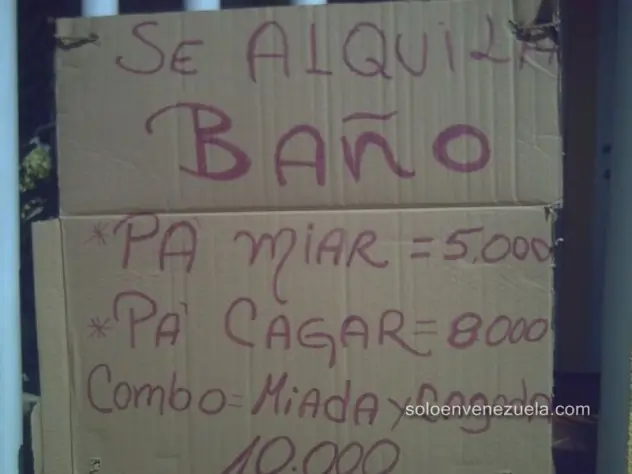 SE ALQUILA
BAÑO
*PA MIAR = 5.000
*PA' CAGAR = 8000
Combo = MiAda y Cagada
10.000
soloenvenezuela.com